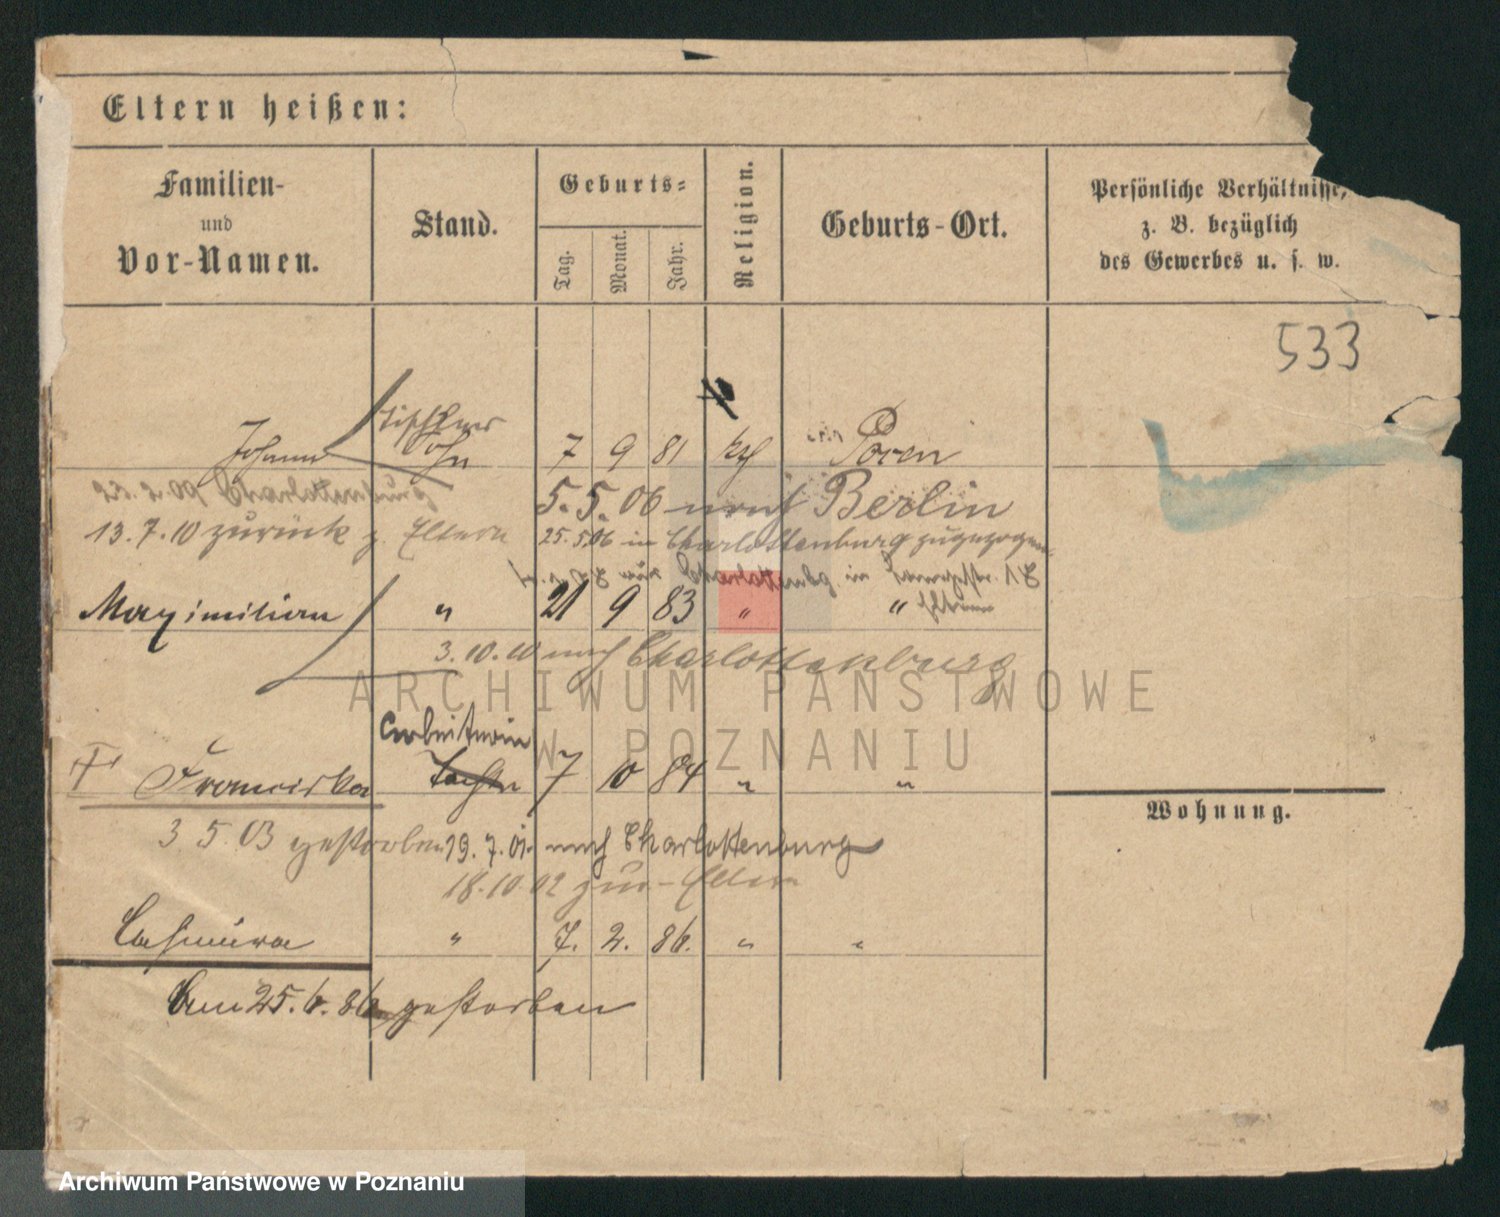 Eltern heißen:
Familien-
und
Vor-Namen.
Stand.
Geburts-
Tag.
Monat.
Jahr.
Religion.
Geburts-Ort.
Persönliche Verhältnisse,
z. B. bezüglich
des Gewerbes u. s. w.
533
Tischler
Johann Sohn 7 9 81 kth Posen
5. 5. 06 nach Berlin
13. 7. 10 zurück z. Eltern 25. 5. 06 in Charlottenburg zugezogen
Maximilian " 21 9 83 " "
3. 10. 10 nach Charlottenburg
ARCHIWUM PAŃSTWOWE
W POZNANIU
Arbeiterin
Franciska Tochter 7 10 84 " "
Wohnung.
3. 5. 03 gestorben 19. 7. 01. nach Charlottenburg
18. 10. 02 zur Eltern
Casimira " 7. 2. 86. " "
Am 25. 6. 86 gestorben
Archiwum Państwowe w Poznaniu